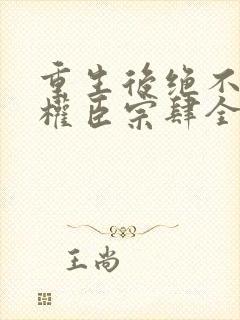 重生後绝不
權臣宗肆全
王尚